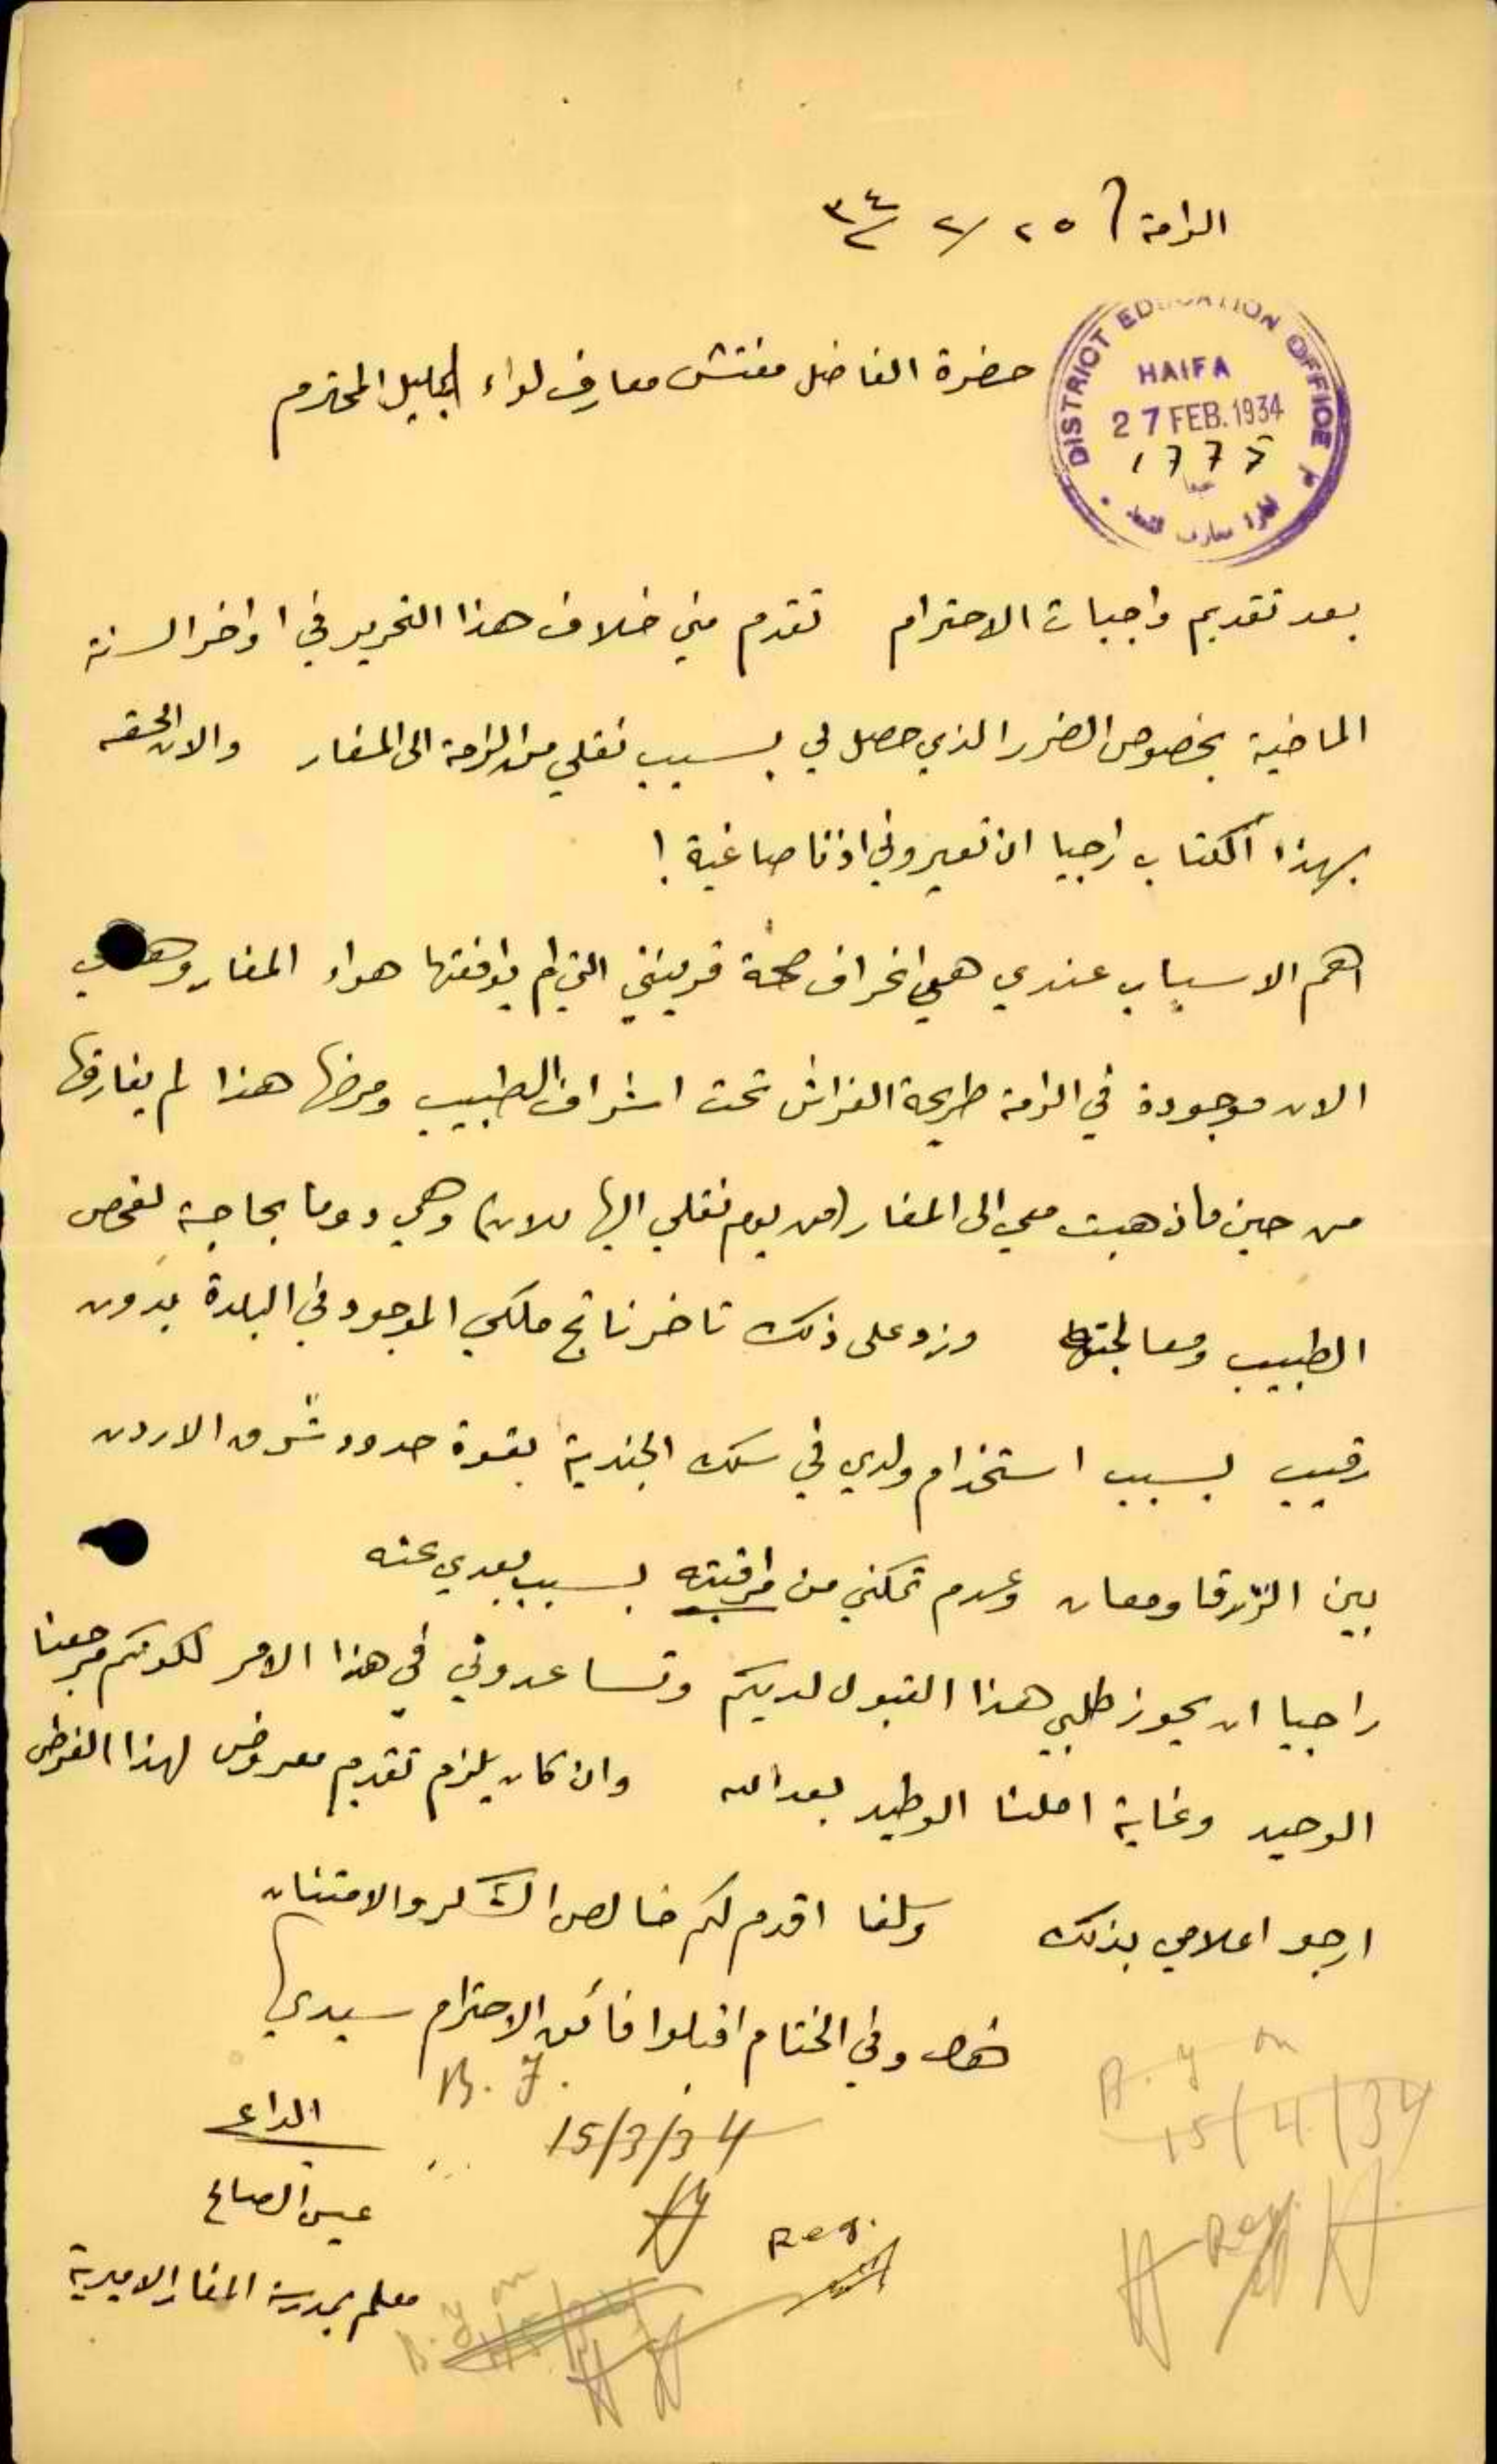 الرامة ٢٥/٢/٣٤
DISTRICT EDUCATION OFFICE
HAIFA
27 FEB. 1934
حيفا
حضرة الفاضل مفتش معارف لواء الجليل المحترم
بعد تقديم واجبات الاحترام تقدم مني خلاف هذا التحرير في اواخر السنة
الماضية بخصوص الضرر الذي حصل لي بسبب نقلي من الرامة الى المغار والان الحقه
بهذا الكتاب راجيا ان تعيروني اذنا صاغية !
اهم الاسباب عندي هي انحراف صحة قرينتي التي لم يوافقها هواء المغار وهي
الان موجودة في الرامة طريحة الفراش تحت اشراف الطبيب ومرضها هذا لم يفارقها
من حين ما ذهبت معي الى المغار (من يوم نقلي اليها للان) وهي دوما بحاجة لفحص
الطبيب ومعالجتها وزد على ذلك تاخر ناتج ملكي الموجود في البلدة بدون
رقيب بسبب استخدام ولدي في سلك الجندية بقوة حدود شرق الاردن
بين الزرقا ومعان وعدم تمكني من مراقبته بسبب بعدي عنه
راجيا ان يحوز طلبي هذا القبول لديكم وتساعدوني في هذا الامر لكونكم مرجعنا
الوحيد وغاية املنا الوطيد بعد الله وان كان يلزم تقديم معروض لهذا الغرض
ارجو اعلامي بذلك وسلفا اقدم لكم خالص الشكر والامتنان
وفي الختام اقبلوا فائق الاحترام سيدي
B. F.
15/3/34
15/4/34
Reg.
الداعي
عيسى الصالح
معلم بمدرسة المغار الاميرية